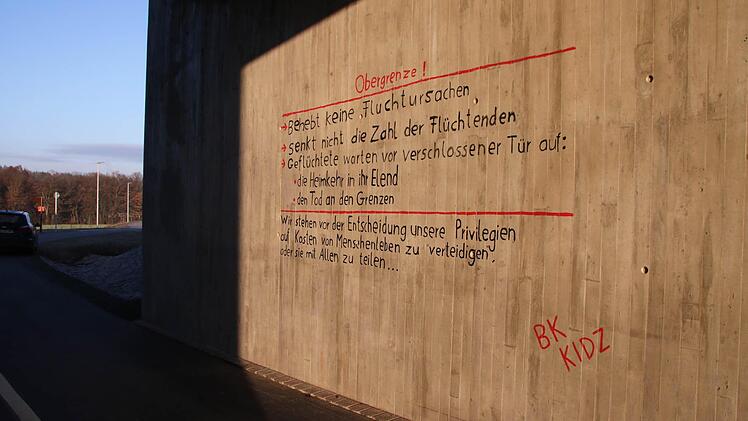 Obergrenze!
→ Behebt keine Fluchtursachen
→ senkt nicht die Zahl der Flüchtenden
→ Geflüchtete warten vor verschlossener Tür auf:
• die Heimkehr in ihr Elend
• den Tod an den Grenzen
Wir stehen vor der Entscheidung unsere Privilegien
auf Kosten von Menschenleben zu verteidigen
oder sie mit Allen zu teilen...
BK
KIDZ